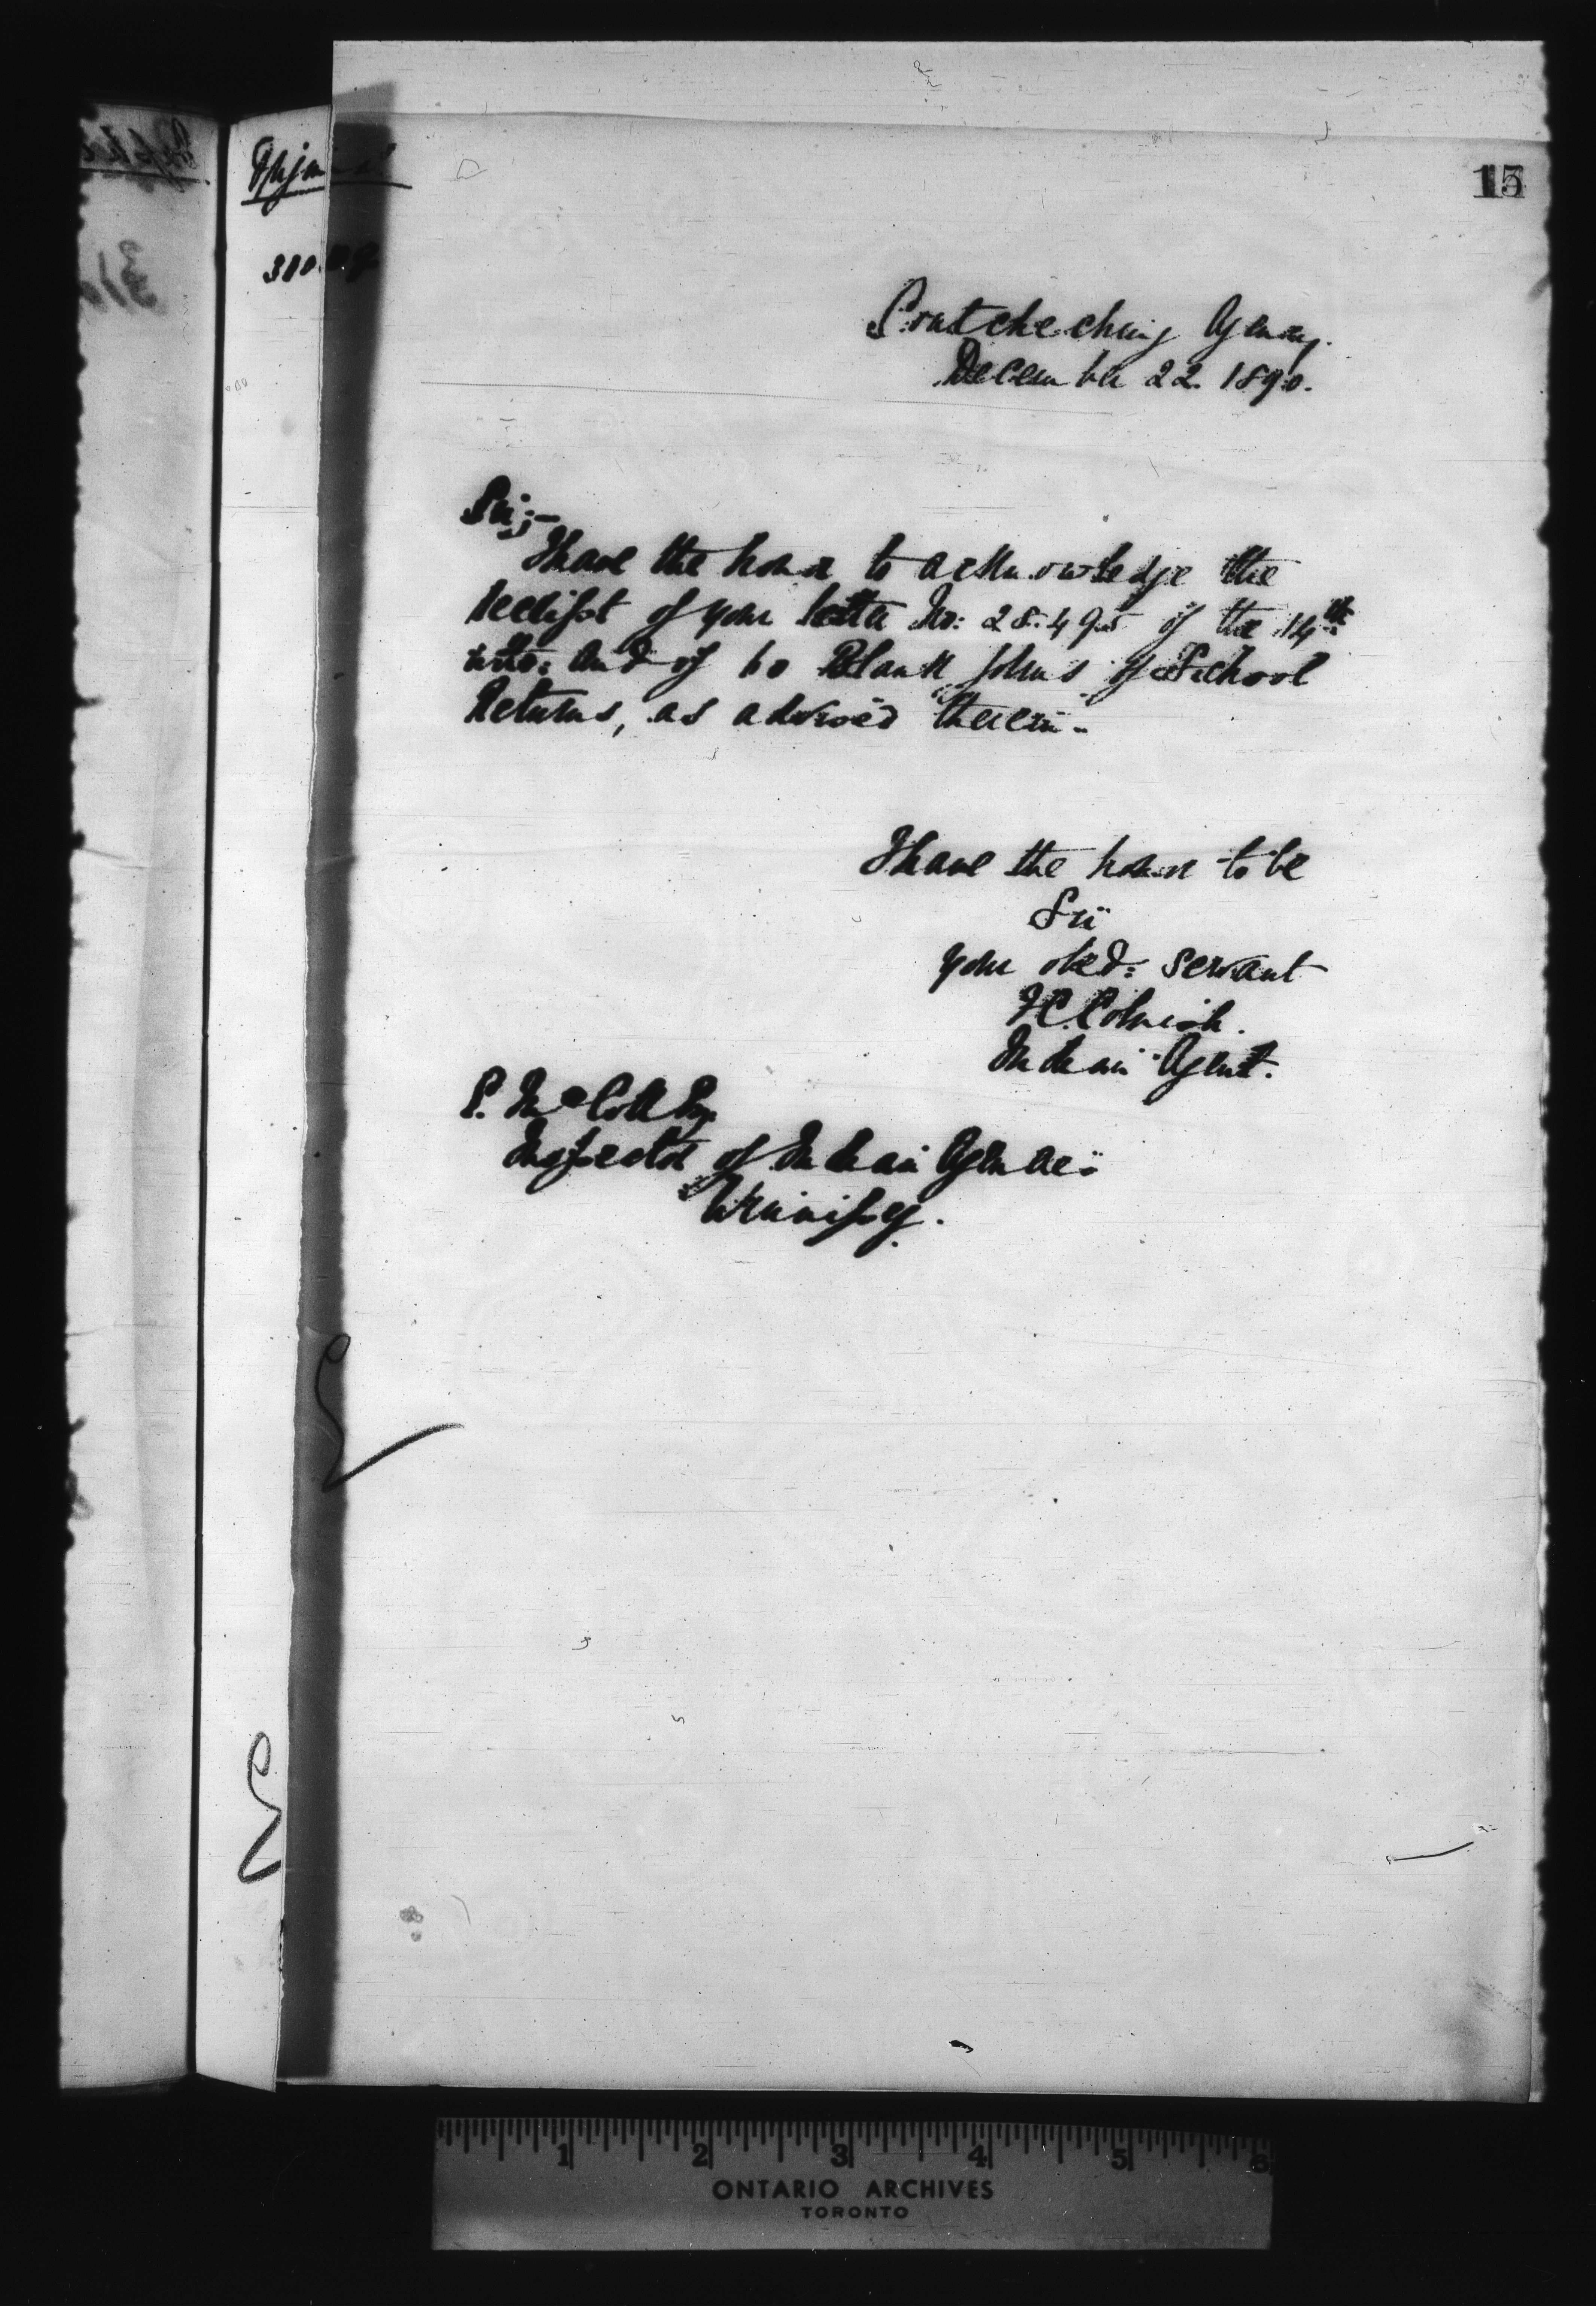 15
Coutcheching Agency.
December 22. 1890.
Sir;-
I have the honor to acknowledge the
receipt of your letter No: 28.495 of the 14th
and of 60 Blank forms of School
Returns, as advised therein.
I have the honor to be
Sir
your obed: servant
Cornish.
Indian Agent.
E. McColl Esq.
Inspector of Indian Agencies
Winnipeg.
1 2 3 4 5 6
ONTARIO ARCHIVES
TORONTO